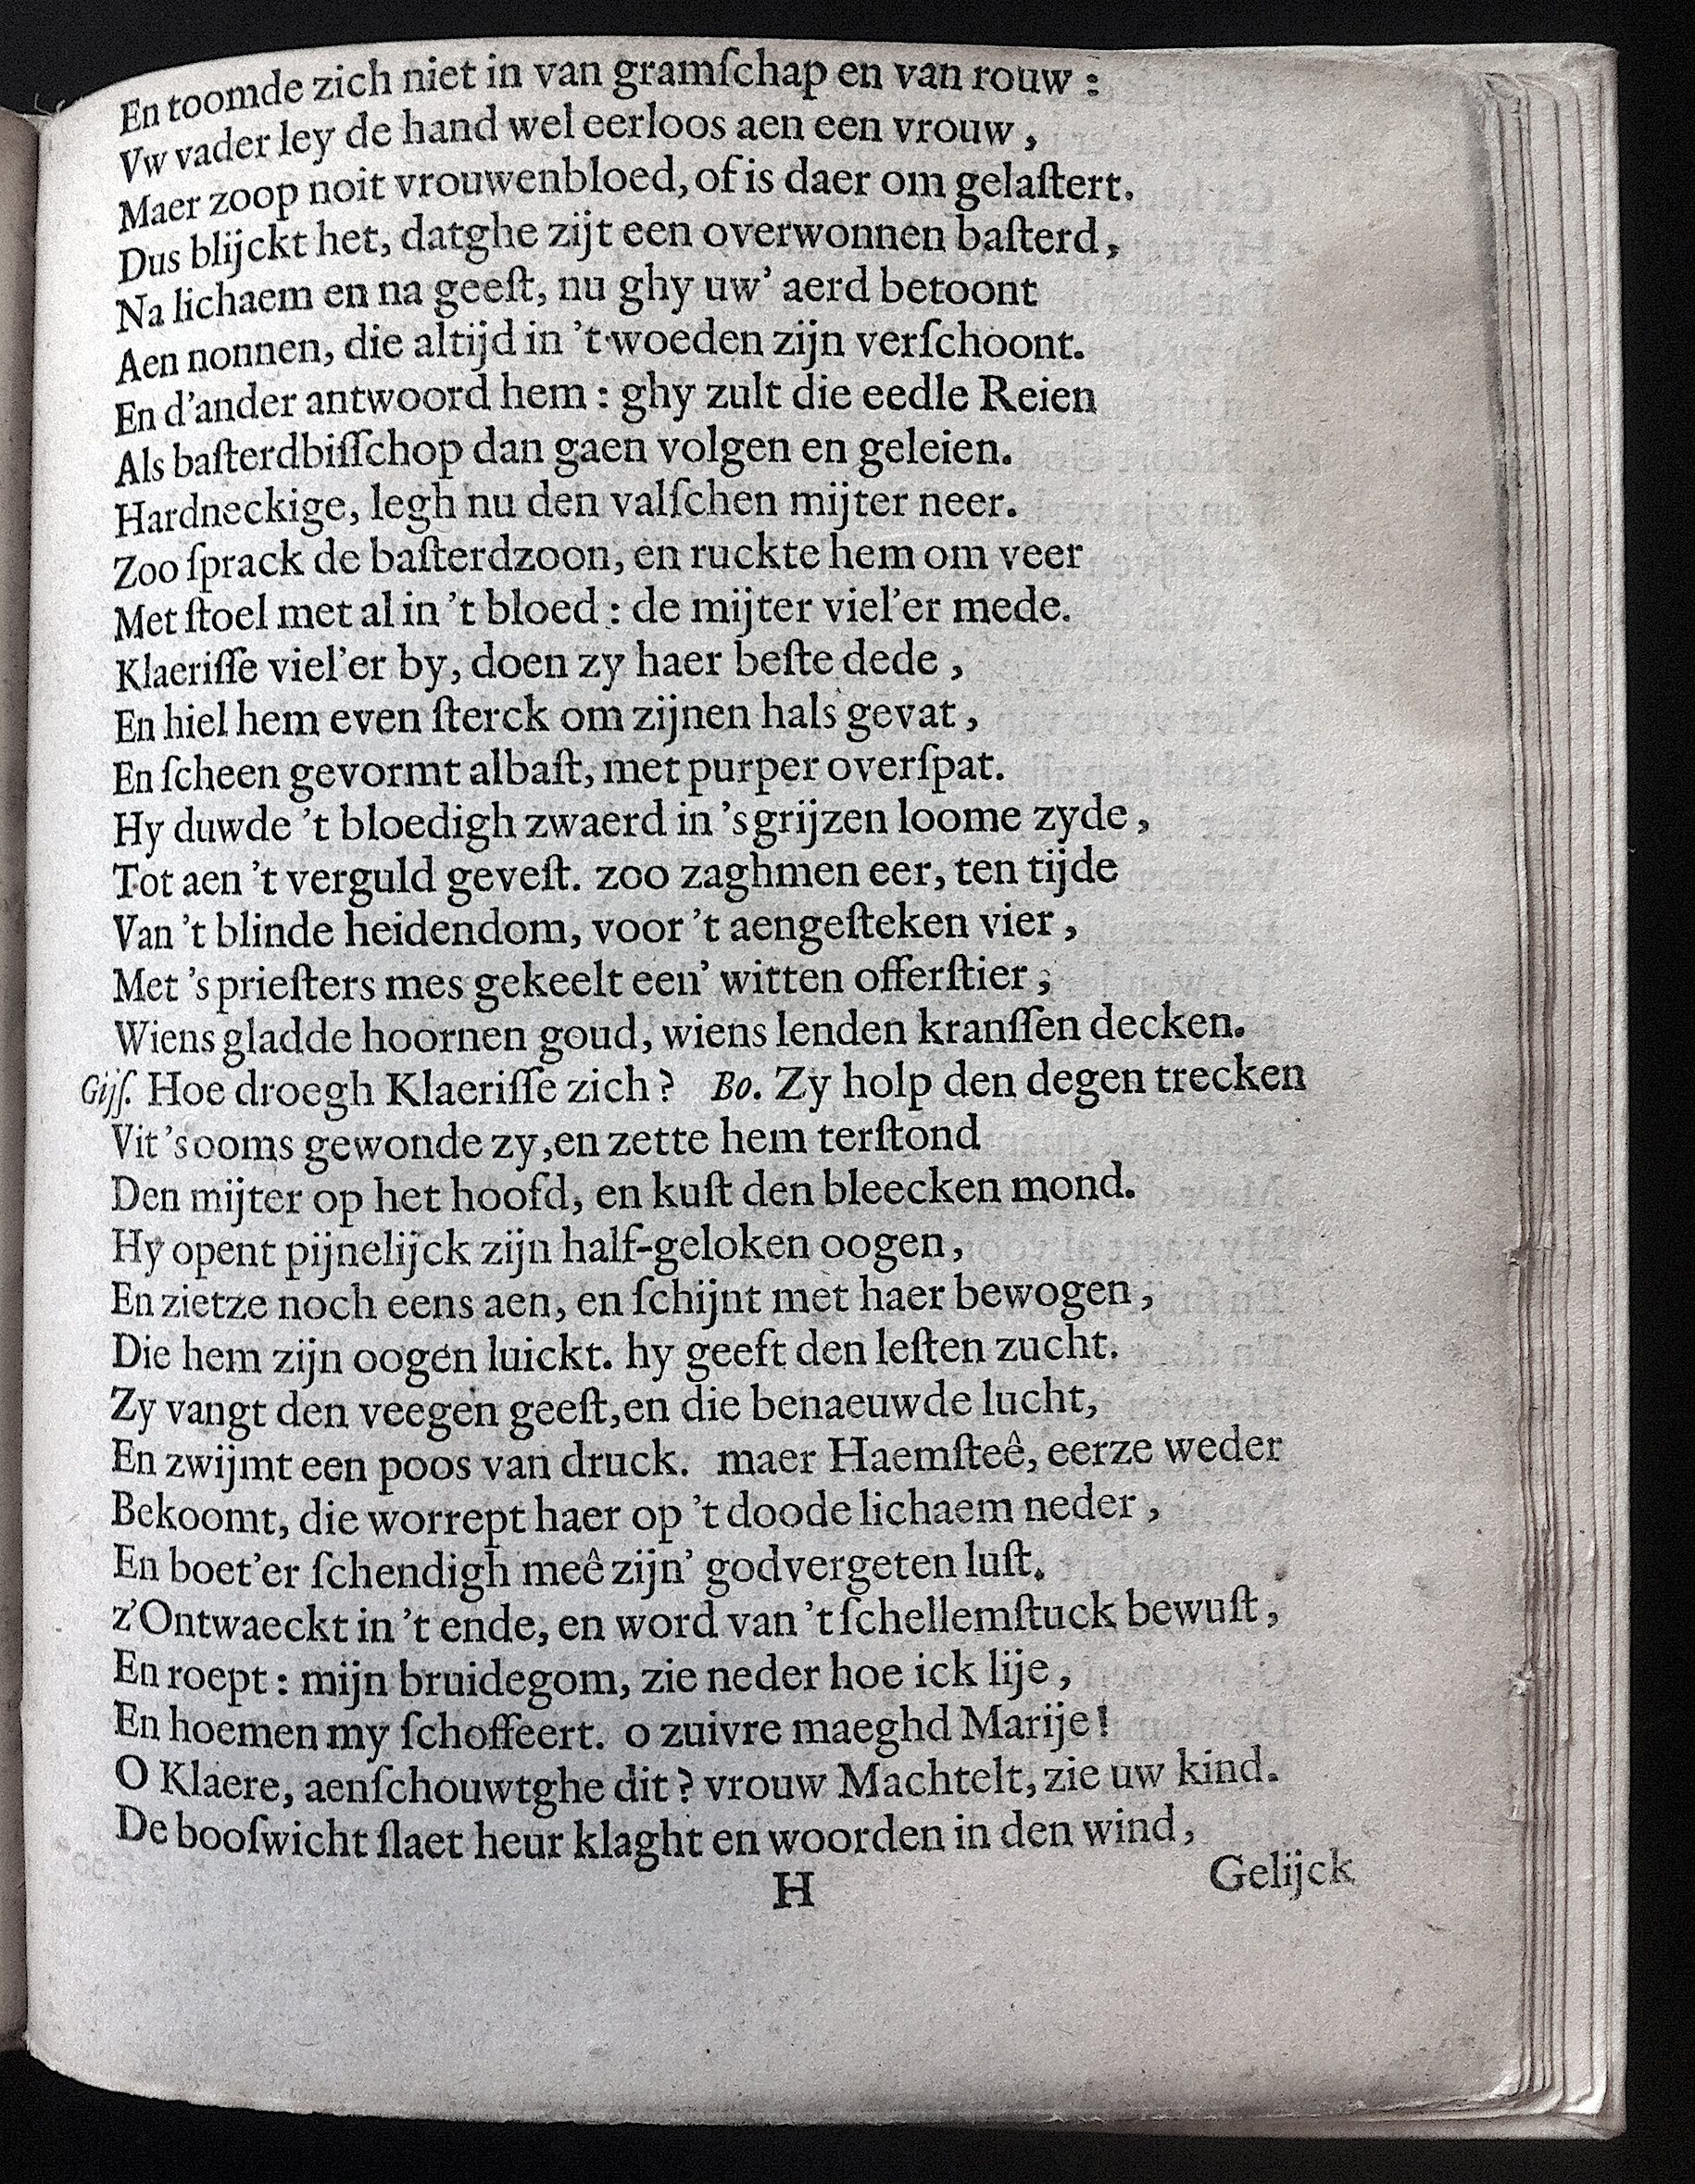 En toomde zich niet in van gramſchap en van rouw :
Vw vader ley de hand wel eerloos aen een vrouw ,
Maer zoop noit vrouwenbloed, of is daer om gelaſtert.
Dus blijckt het, datghe zijt een overwonnen baſterd ,
Na lichaem en na geeſt, nu ghy uw’ aerd betoont
Aen nonnen, die altijd in ’t woeden zijn verſchoont.
En d’ander antwoord hem : ghy zult die eedle Reien
Als baſterdbiſſchop dan gaen volgen en geleien.
Hardneckige, legh nu den valſchen mijter neer.
Zoo ſprack de baſterdzoon, en ruckte hem om veer
Met ſtoel met al in ’t bloed : de mijter viel’er mede.
Klaeriſſe viel’er by, doen zy haer beſte dede ,
En hiel hem even ſterck om zijnen hals gevat ,
En ſcheen gevormt albaſt, met purper overſpat.
Hy duwde ’t bloedigh zwaerd in ’s grijzen loome zyde ,
Tot aen ’t verguld geveſt. zoo zaghmen eer, ten tijde
Van ’t blinde heidendom, voor ’t aengeſteken vier ,
Met ’s prieſters mes gekeelt een’ witten offerſtier ;
Wiens gladde hoornen goud, wiens lenden kranſſen decken.
Gijſ. Hoe droegh Klaeriſſe zich ? Bo. Zy holp den degen trecken
Vit ’s ooms gewonde zy, en zette hem terſtond
Den mijter op het hoofd, en kuſt den bleecken mond.
Hy opent pijnelijck zijn half-geloken oogen ,
En zietze noch eens aen, en ſchijnt met haer bewogen ,
Die hem zijn oogen luickt. hy geeft den leſten zucht.
Zy vangt den veegen geeſt, en die benaeuwde lucht,
En zwijmt een poos van druck. maer Haemſteê, eerze weder
Bekoomt, die worrept haer op ’t doode lichaem neder ,
En boet’er ſchendigh meê zijn’ godvergeten luſt.
z’Ontwaeckt in ’t ende, en word van ’t ſchellemſtuck bewuſt ,
En roept : mijn bruidegom, zie neder hoe ick lije ,
En hoemen my ſchoffeert. o zuivre maeghd Marije !
O Klaere, aenſchouwtghe dit ? vrouw Machtelt, zie uw kind.
De booſwicht ſlaet heur klaght en woorden in den wind ,
H
Gelijck